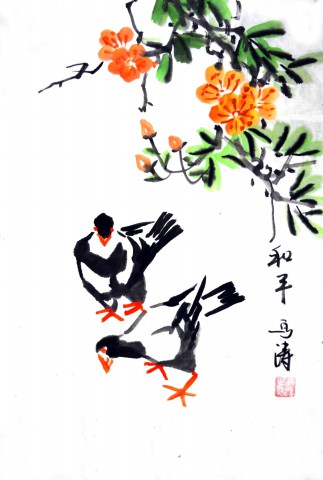 和平
马涛